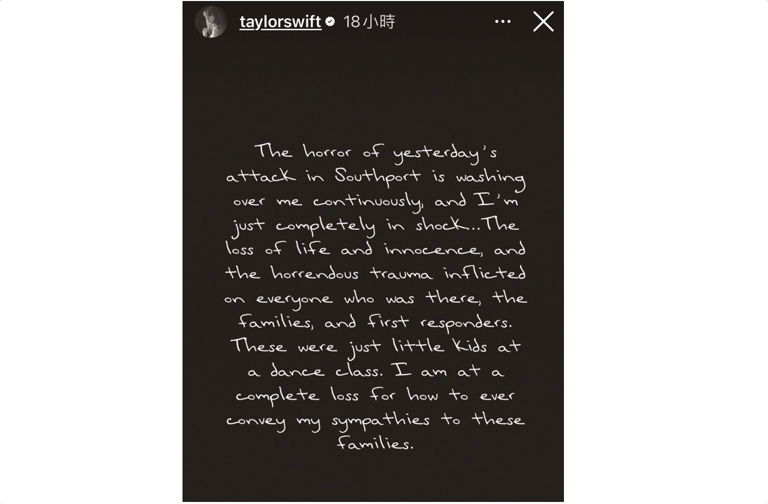 taylorswift 18小時
The horror of yesterday's
attack in Southport is washing
over me continuously, and I'm
just completely in shock...The
loss of life and innocence, and
the horrendous trauma inflicted
on everyone who was there, the
families, and first responders.
These were just little kids at
a dance class. I am at a
complete loss for how to ever
convey my sympathies to these
families.